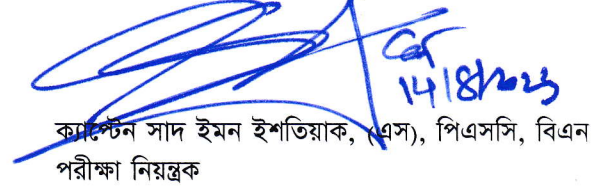 14/8/2023
ক্যাপ্টেন সাদ ইমন ইশতিয়াক, (এস), পিএসসি, বিএন
পরীক্ষা নিয়ন্ত্রক